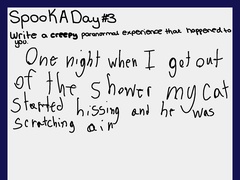 SpooKADay#3
Write a creepy paranormal experience that happened to
you.
One night when I got out
of the shower my cat
started hissing and he was
scratching air